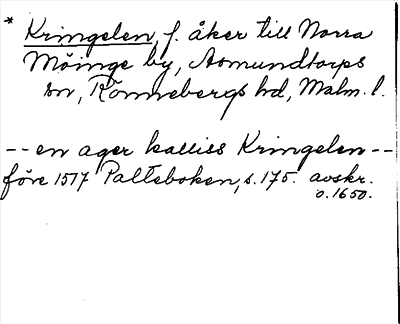 * Kringelen, f. åker till Norra
Möinge by, Asmundtorps
sn, Rönnebergs hd, Malm. l.
-- en ager kalliss Kringelen --
före 1517 Palteboken, s. 175. avskr.
o. 1650.